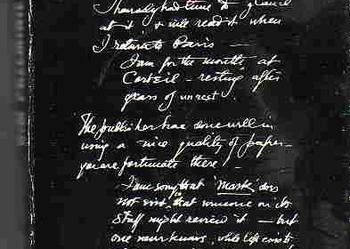 I honestly had time to glance
at it & will read it when
I return to Paris —
I am for the month at
Corteil — resting after
years of unrest.
The publisher have done well in
using a nice quality of paper —
you are fortunate there.
I am sorry that 'Mask' does
not exist, that someone on its
staff might review it — but
one never knows, while life exists